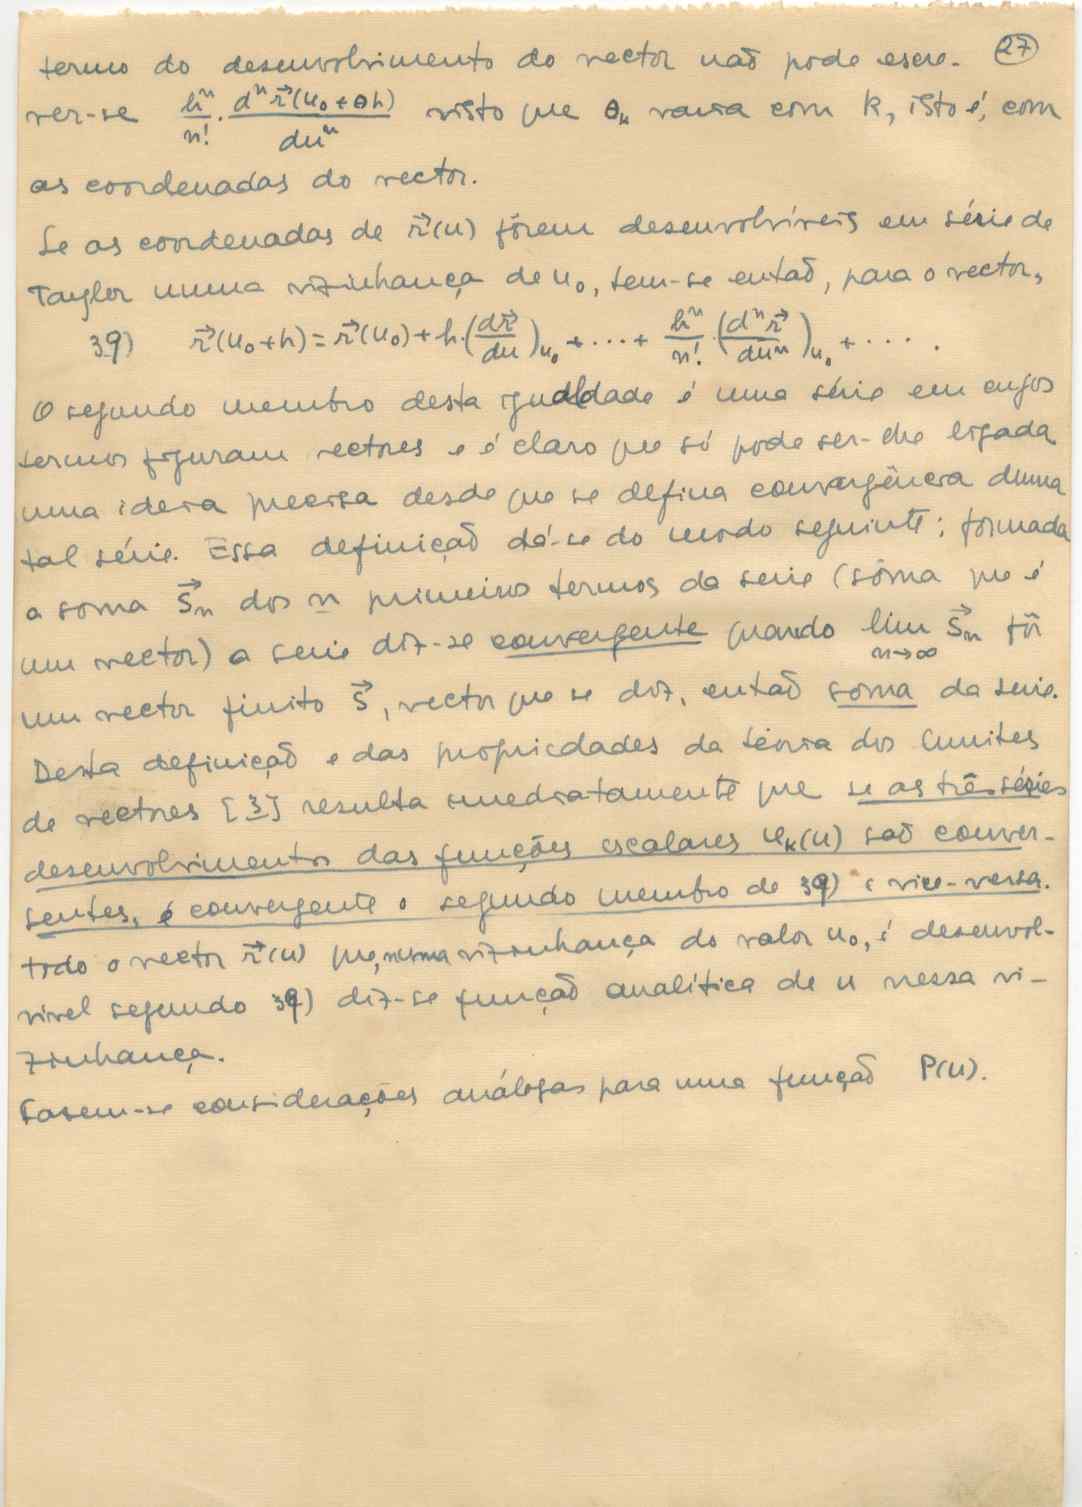 27
termo do desenvolvimento do vector naõ pode escre-
ver-se hⁿ/n! · dⁿr⃗(u₀+θh)/duⁿ visto que θₖ varia com k, isto é, com
as coordenadas do vector.
Se as coordenadas de r⃗(u) fôrem desenvolvíveis em série de
Taylor numa vizinhança de u₀, tem-se entaõ, para o vector,
39) r⃗(u₀+h) = r⃗(u₀) + h·(dr⃗/du)u₀ + ··· + hⁿ/n! · (dⁿr⃗/duⁿ)u₀ + ···.
O segundo membro desta igualdade é uma série em cujos
termos figuram vectores e é claro que só pode ser-lhe ligada
uma ideia precisa desde que se defina convergência duma
tal série. Essa definiçaõ dá-se do modo seguinte: formada
a soma S⃗ₙ dos n primeiros termos da serie (sôma que é
um vector) a serie diz-se convergente quando lim n→∞ S⃗ₙ fôr
um vector finito S⃗, vector que se diz, entaõ soma da serie.
Desta definiçaõ e das propriedades da teoria dos limites
de vectores [3] resulta imediatamente que se as três séries
desenvolvimentos das funções escalares uₖ(u) saõ conver-
gentes, é convergente o segundo membro de 39) e vice-versa.
Todo o vector r⃗(u) que, numa vizinhança do valor u₀, é desenvol-
vivel segundo 39) diz-se funçaõ analítica de u nessa vi-
zinhança.
Fazem-se considerações análogas para uma funçaõ P(u).